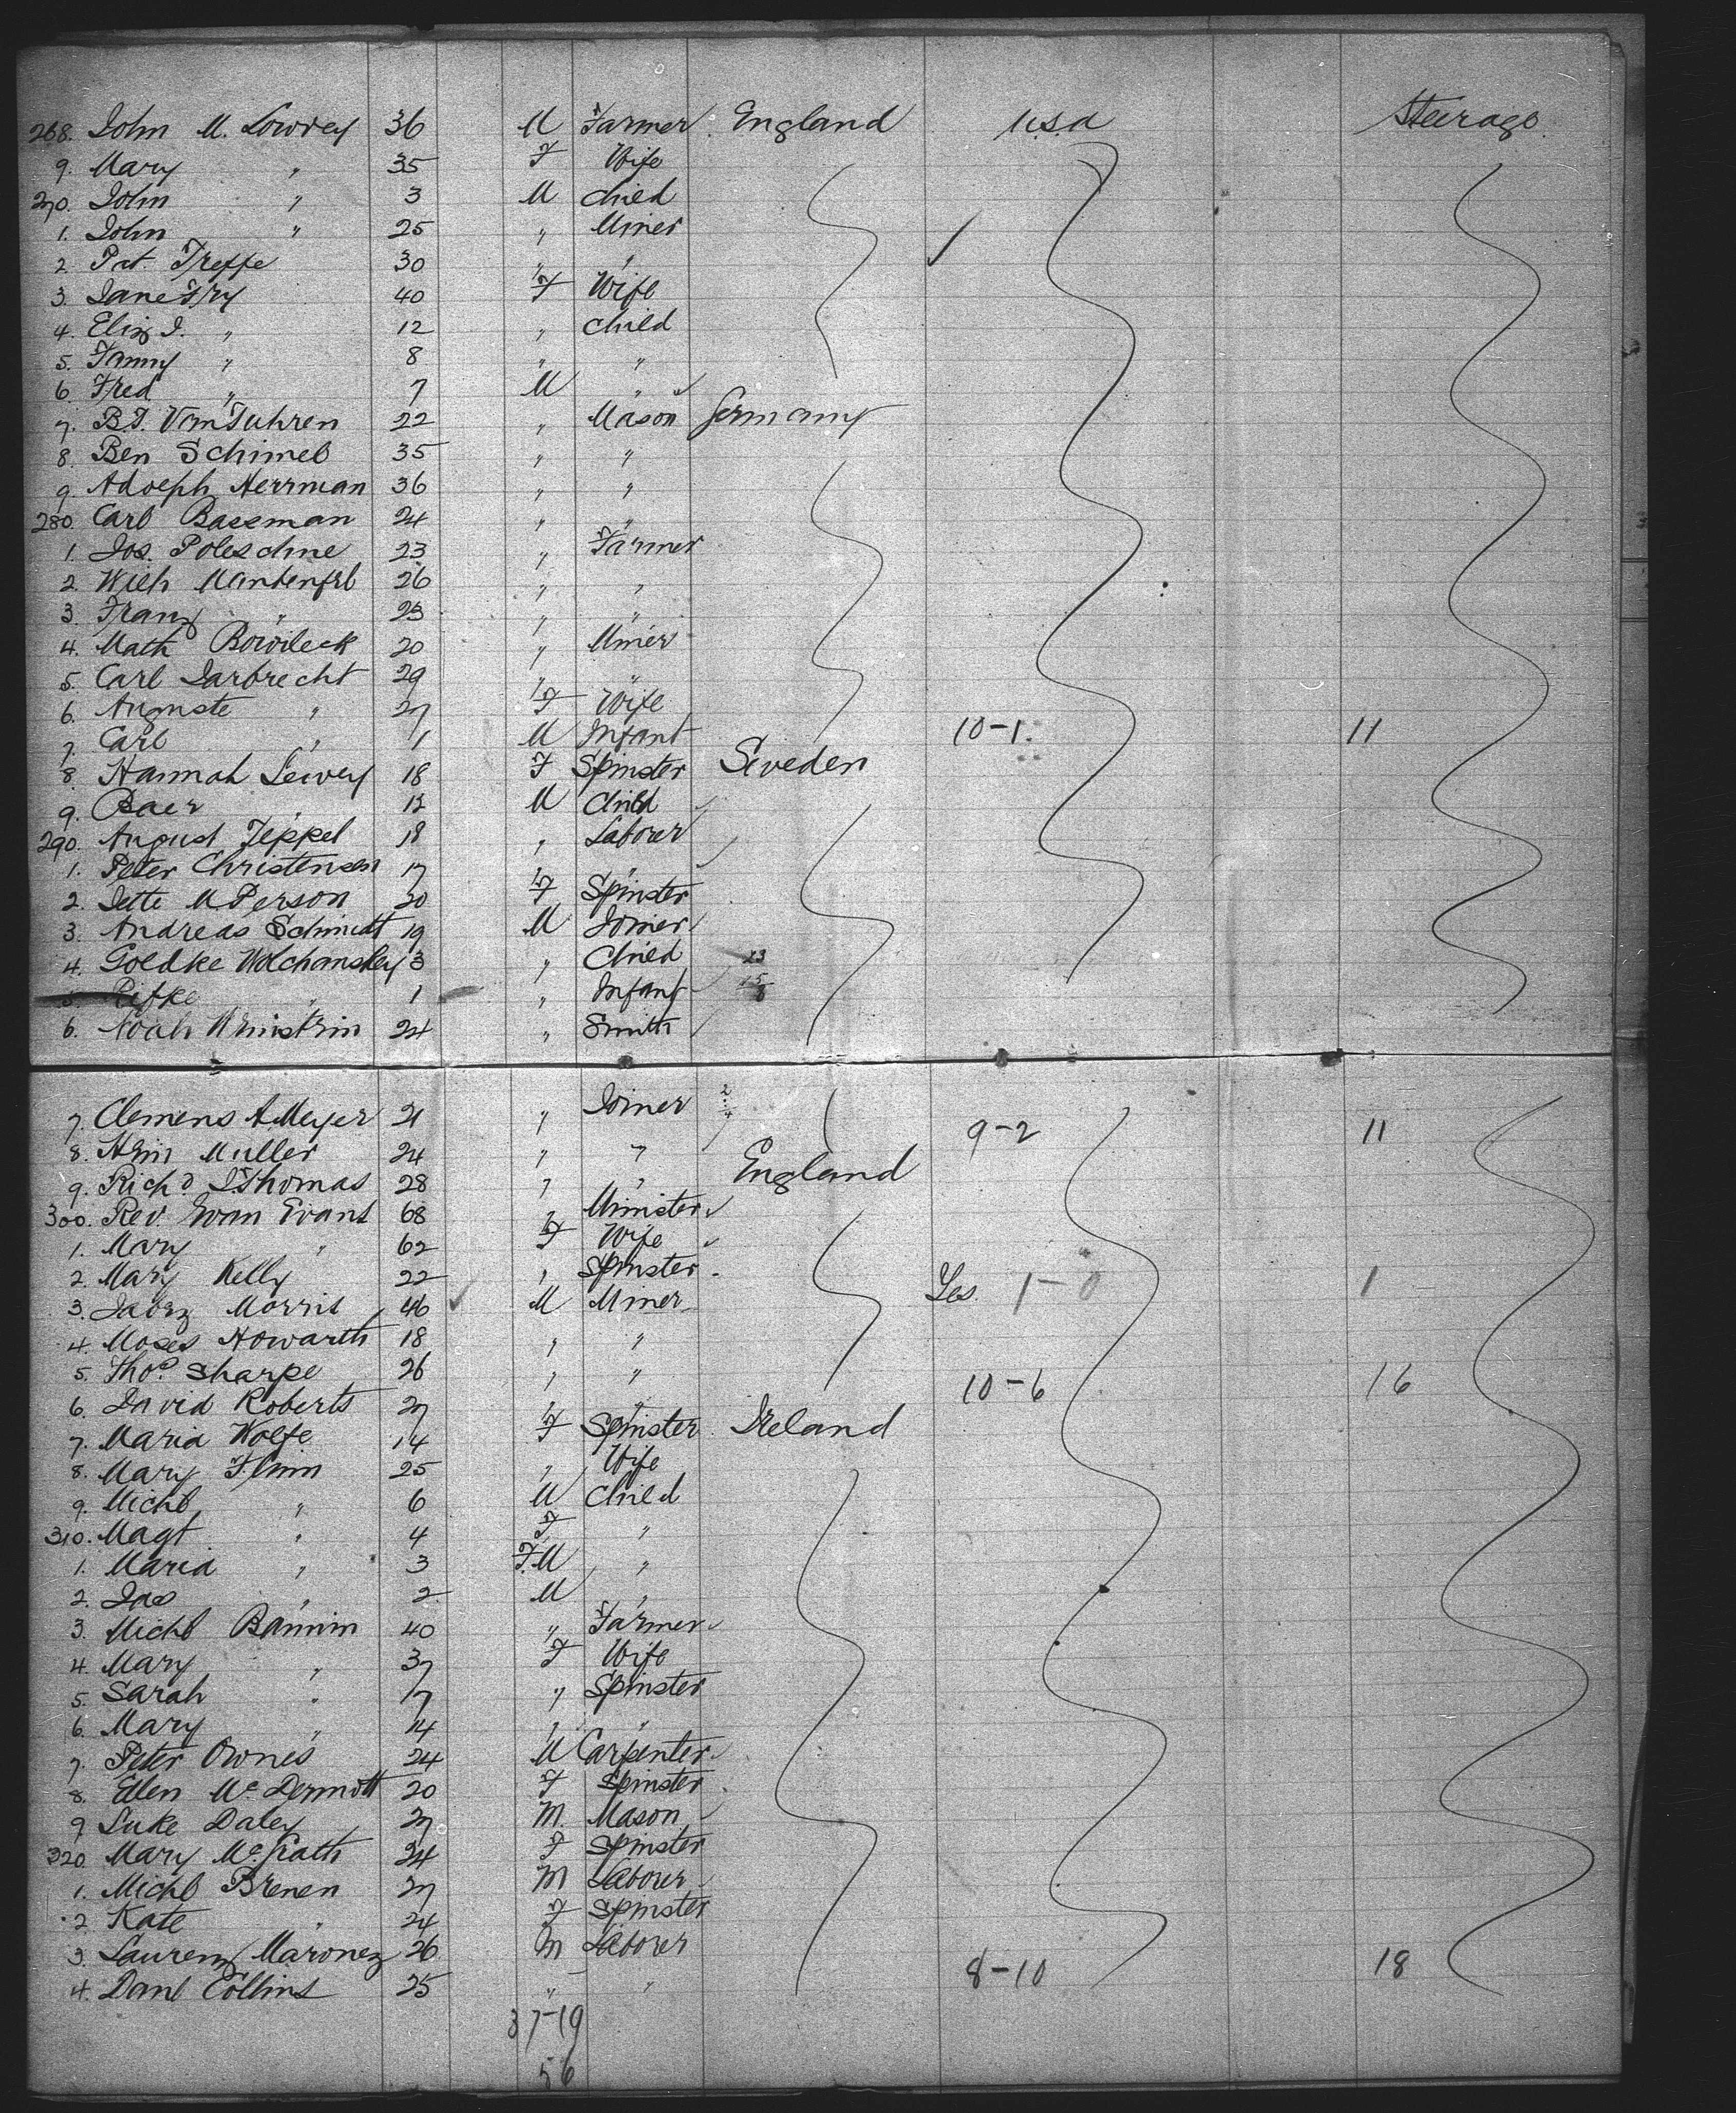 268. John M. Lowrey 36 M Farmer England U.S.A Steerage
9. Mary " 35 F Wife
270. John " 3 M Child
1. John " 25 " Miner
2. Pat. Treffe 30 " "
3. Jane Fry 40 F Wife
4. Eliz J. " 12 " Child
5. Fanny " 8 " "
6. Fred " 7 M "
7. B.J. VanTuhren 22 " Mason Germany
8. Ben Schimel 35 " "
9. Adolph Herrman 36 " "
280. Carl Bassman 24 " "
1. Jos. Poleschne 23 " Farmer
2. Wilh 26 " "
3. Franz " 23 " "
4. Math 20 " Miner
5. Carl Jarbrecht 29 " "
6. Auguste " 27 F Wife
7. Carl " 1 M Infant 10-1. 11
8. Hannah Lewey 18 F Spinster Sweden
9. Baer " 12 M Child
290. August Jeppel 18 " Laborer
1. Peter Christensen 17 " "
2. Jette M. Person 20 F Spinster
3. Andreas Schmidt 19 M Joiner
4. Goldke Wolchansky 3 " Child 23
5. Rifke " 1 " Infant
6. Noah 24 " Smith
7. Clemens A Meyer 21 " Joiner 9-2 11
8. Muller 24 " "
9. Richd Thomas 28 " " England
300. Rev. Evan Evans 68 " Minister
1. Mary " 62 F Wife
2. Mary Kelly 22 " Spinster Yes 1-0 1
3. Jabez Morris 46 M Miner
4. Moses Howarth 18 " "
5. Thos. Sharpe 26 " " 10-6 16
6. David Roberts 27 " "
7. Maria Wolfe 14 F Spinster Ireland
8. Mary Flinn 25 " Wife
9. Michl " 6 M Child
310. Magt " 4 F "
1. Maria " 3 F.M "
2. Jas " 2 M "
3. Michl Bannin 40 " Farmer
4. Mary " 37 F Wife
5. Sarah " 17 " Spinster
6. Mary " 14 " "
7. Peter Ownes 24 M Carpenter
8. Ellen McDermott 20 F Spinster
9. Luke Daley 27 M. Mason
320. Mary McGrath 24 F Spinster
1. Michl Brenen 27 M Laborer
2. Kate " 24 F Spinster
3. Laurenz Maronez 26 M Laborer
4. Danl Collins 25 " " 8-10 18
37-19
56